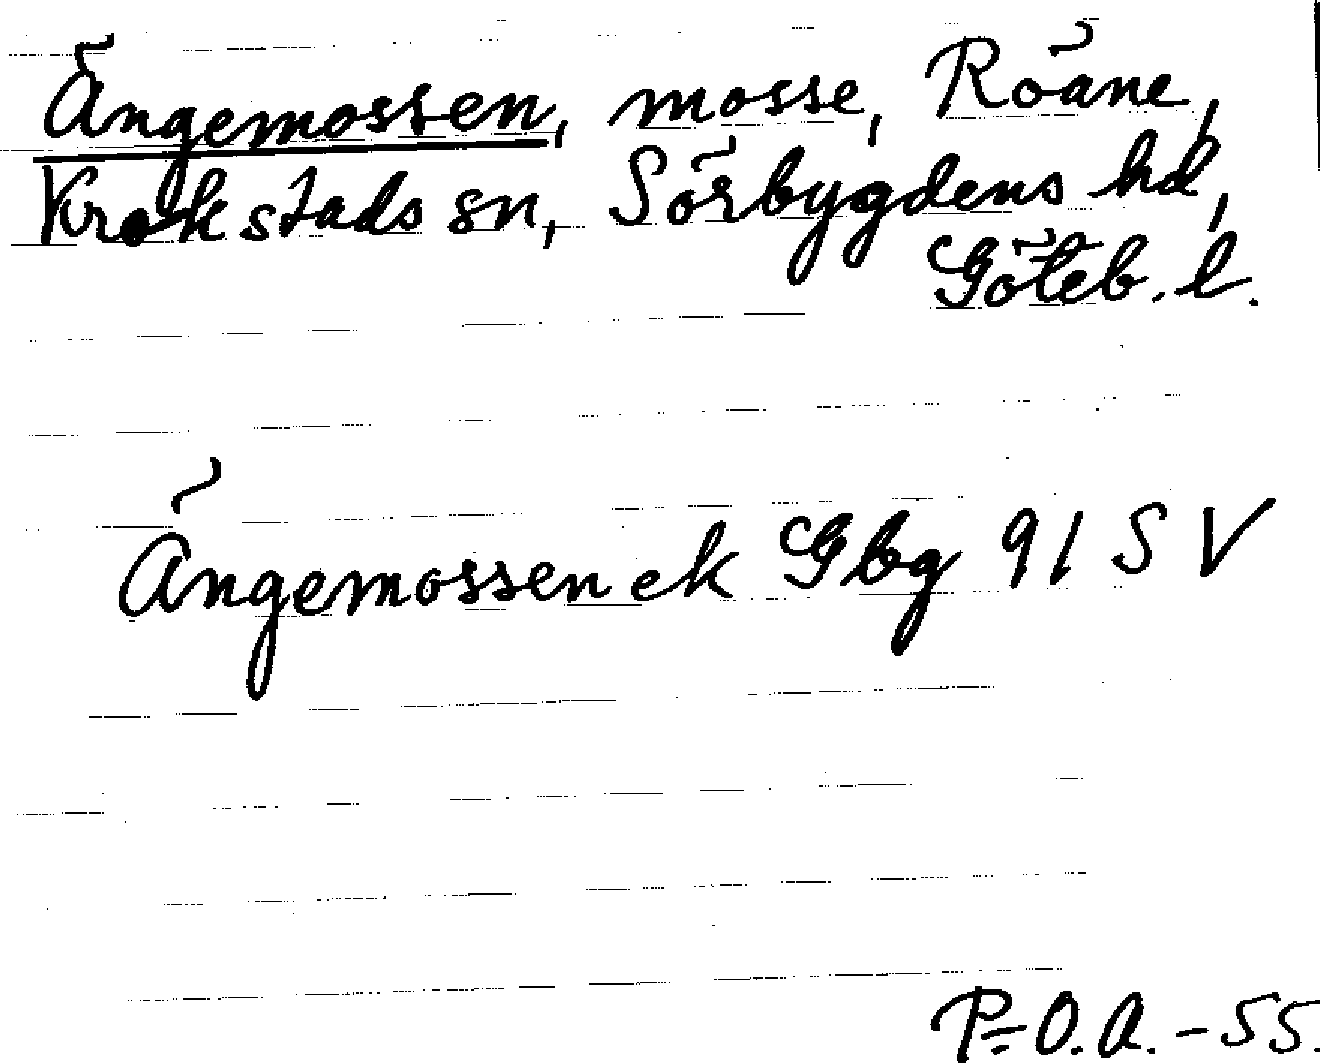 Ängemossen, mosse, Röäne,
Krokstads sn, Sörbygdens hd,
Göteb. l.
Ängemossen ek Gbg 91 SV
P=O.A. - 55.